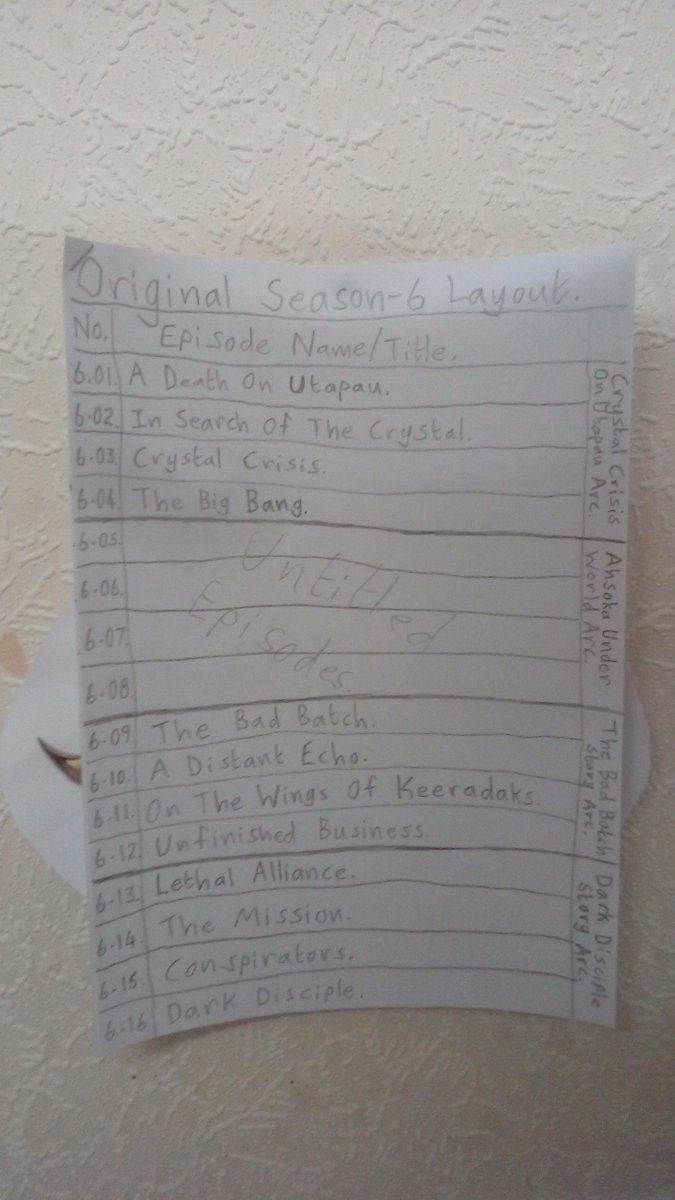 Original Season-6 Layout.
No. Episode Name/Title.
6.01. A Death On Utapau.
6.02. In Search Of The Crystal.
6.03. Crystal Crisis.
6.04. The Big Bang.
Crystal Crisis
On Utapau Arc.
6.05.
6.06.
6.07.
6.08.
Untitled
Episodes.
Ahsoka Under
World Arc.
6.09. The Bad Batch.
6.10. A Distant Echo.
6.11. On The Wings Of Keeradaks.
6.12. Unfinished Business.
The Bad Batch
Story Arc.
6.13. Lethal Alliance.
6.14. The Mission.
6.15. Conspirators.
6.16. Dark Disciple.
Dark Disciple
Story Arc.